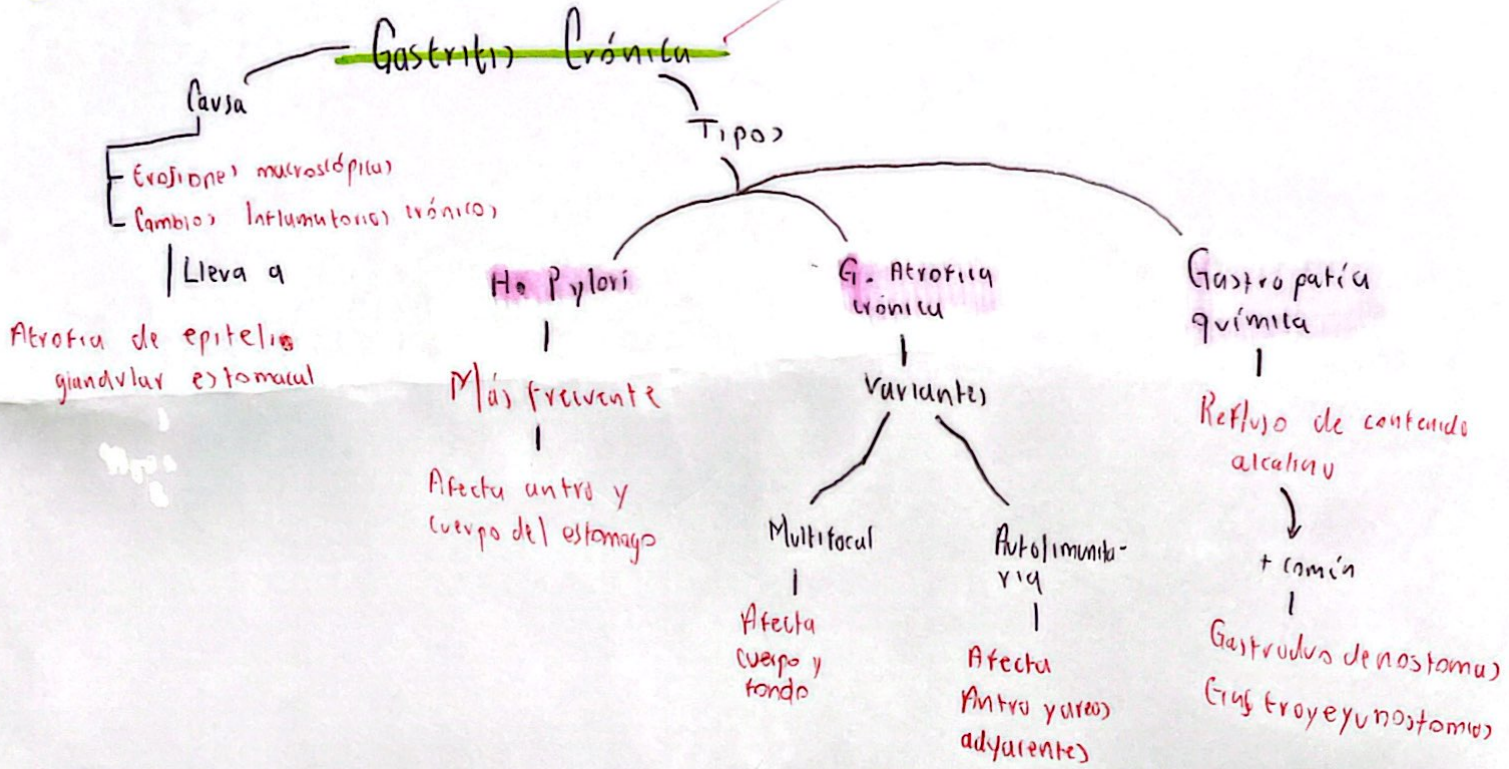 Gastritis Crónica
Causa
Erosiones macroscópicas
Cambios Inflamatorios crónicos
Lleva a
Atrofia de epitelio
glandular estomacal
Tipos
H. Pylori
Más frecuente
Afecta antro y
cuerpo del estomago
G. Atrofica
crónica
Variantes
Multifocal
Afecta
cuerpo y
fondo
Autoinmunita-
ria
Afecta
Antro y areas
adyacentes
Gastropatía
química
Reflujo de contenido
alcalino
+ común
Gastroduodenostomas
Gastroyeyunostomias